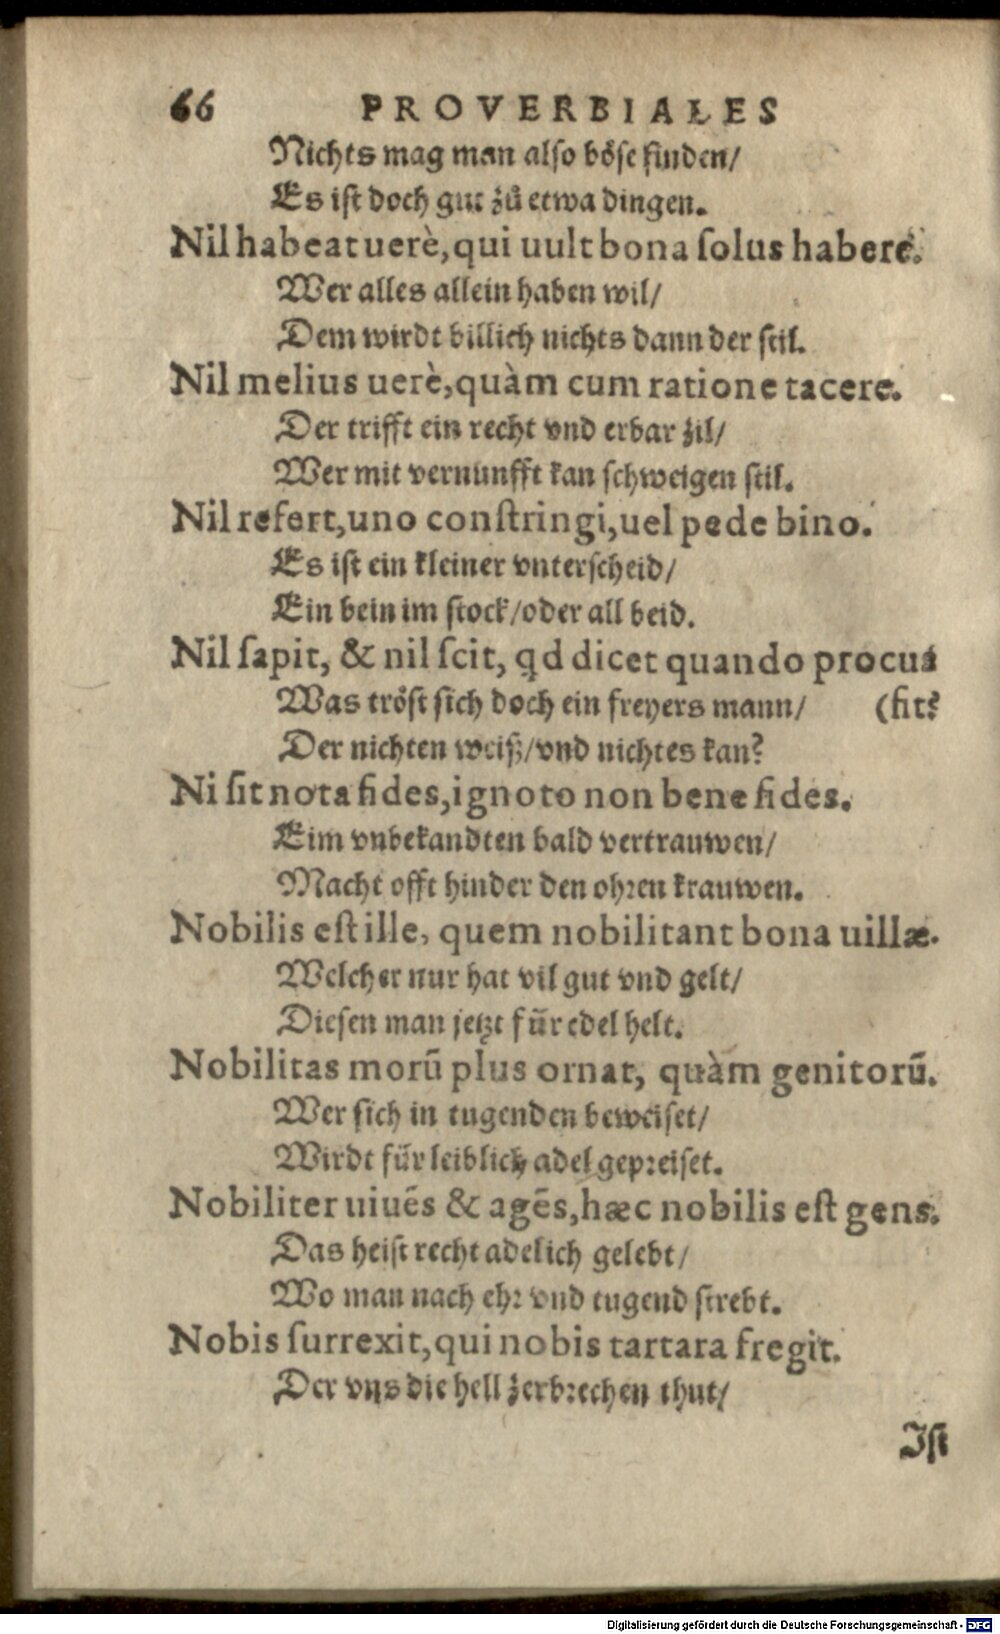 66 PROVERBIALES
Nichts mag man also böse finden/
Es ist doch gut zů etwa dingen.
Nil habeat uerè, qui uult bona solus habere.
Wer alles allein haben wil/
Dem wirdt billich nichts dann der stil.
Nil melius uerè, quàm cum ratione tacere.
Der trifft ein recht vnd erbar zil/
Wer mit vernunfft kan schweigen stil.
Nil refert, uno constringi, uel pede bino.
Es ist ein kleiner vnterscheid/
Ein bein im stock/oder all beid.
Nil sapit, & nil scit, qd dicet quando procus
Was tröst sich doch ein freyers mann/ (fit?
Der nichten weiß/vnd nichtes kan?
Ni sit nota fides, ignoto non bene fides.
Eim vnbekandten bald vertrauwen/
Macht offt hinder den ohren krauwen.
Nobilis est ille, quem nobilitant bona uillæ.
Welcher nur hat vil gut vnd gelt/
Diesen man jetzt für edel helt.
Nobilitas morū plus ornat, quàm genitorū.
Wer sich in tugenden beweiset/
Wirdt für leiblich adel gepreiset.
Nobiliter uiuēs & agēs, hæc nobilis est gens.
Das heist recht adelich gelebt/
Wo man nach ehr vnd tugend strebt.
Nobis surrexit, qui nobis tartara fregit.
Der vns die hell zerbrechen thut/
Ist
Digitalisierung gefördert durch die Deutsche Forschungsgemeinschaft - DFG